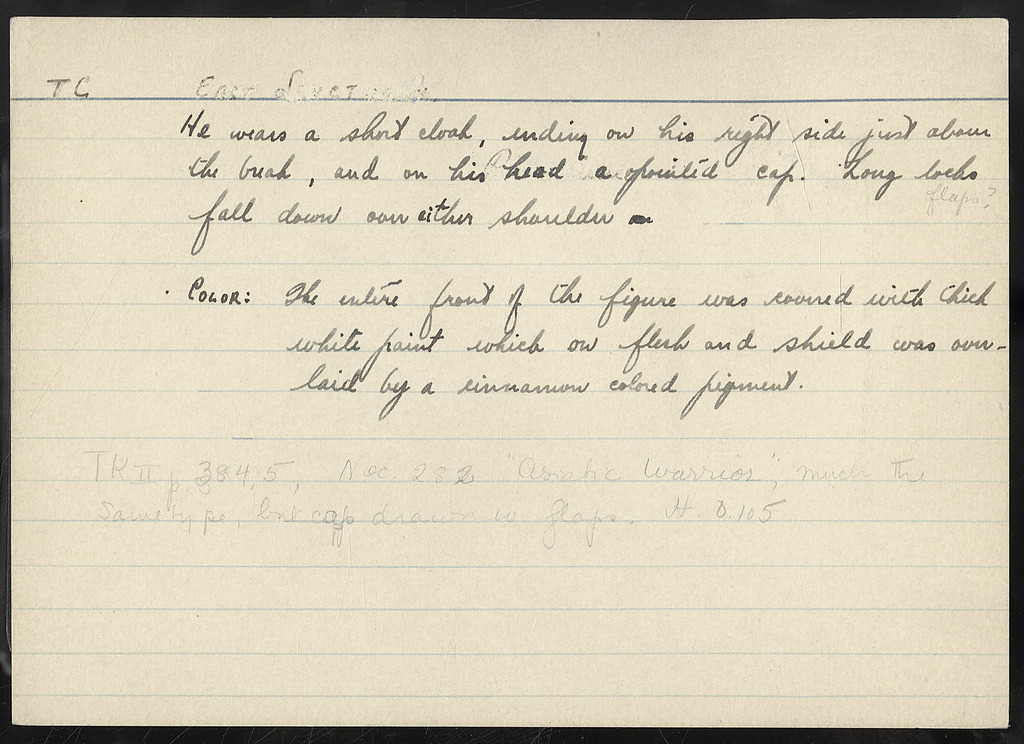 TC East
He wears a short cloak, ending on his right side just above
the break, and on his head a pointed cap. Long locks
flaps?
fall down over either shoulder
Color: The entire front of the figure was covered with thick
white paint which on flesh and shield was over-
laid by a cinnamon colored pigment.
TK II p 384,5, Nec. 282 "Asiatic Warrior", much the
same type, but cap drawn w flaps. H. 0.105